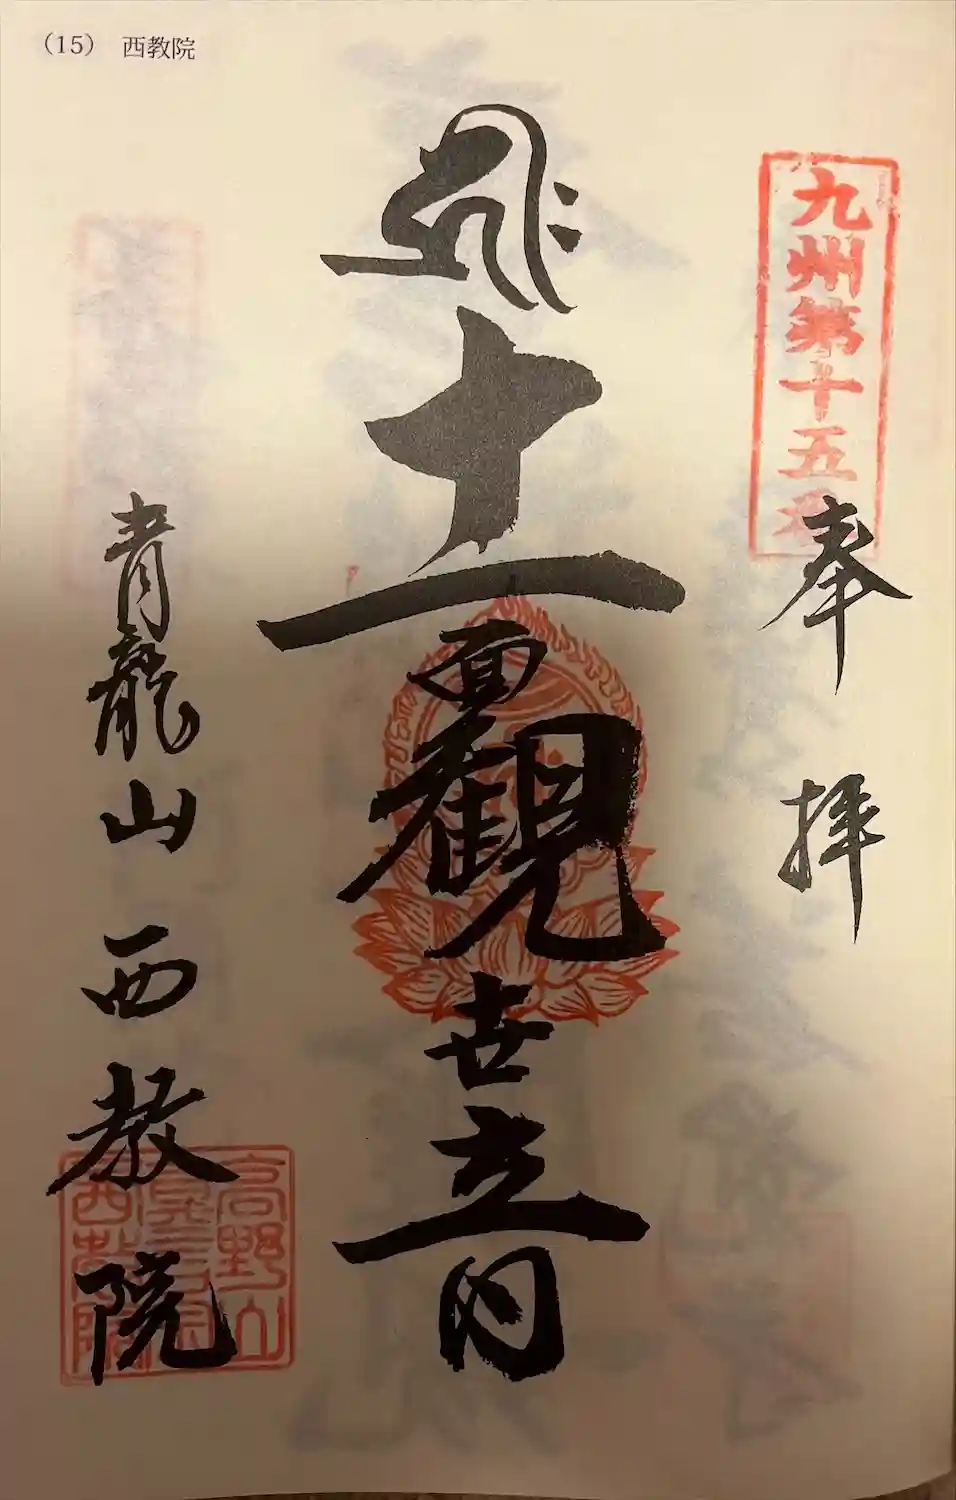 (15) 西教院
九州第十五番
奉拝
十一面観世音
青龍山 西教院
高野山
西教院